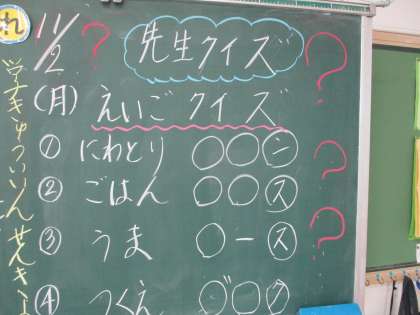 11/2
(月)
先生クイズ
えいごクイズ
① にわとり ○○ン
② ごはん ○○ス
③ うま ○ース
④ つくえ ○゛○ク
学きゅういいんせんきょ